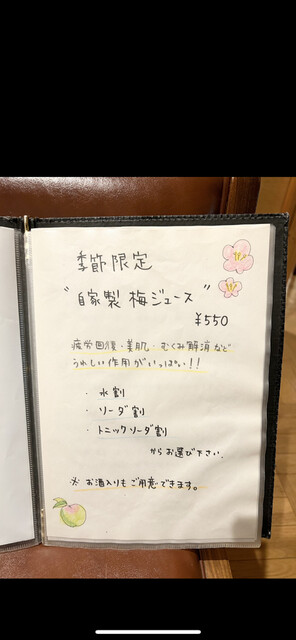 季節限定
"自家製 梅ジュース"
¥550
疲労回復・美肌・むくみ解消など
うれしい作用がいっぱい!!
・水割
・ソーダ割
・トニックソーダ割
からお選び下さい。
※ お酒入りもご用意できます。